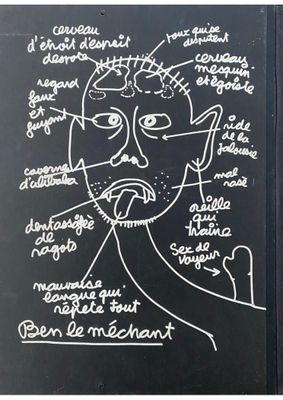 cerveau
d'étroit d'esprit
despote
poux qui se
disputent
cerveau
mesquin
et égoïste
regard
faux
et
fuyant
ride
de la
jalousie
caverne
d'alibaba
mal
rasé
oreille
qui
traine
dent assoifée
de
ragots
Sex de
voyeur
mauvaise
langue qui
répète tout
Ben le méchant